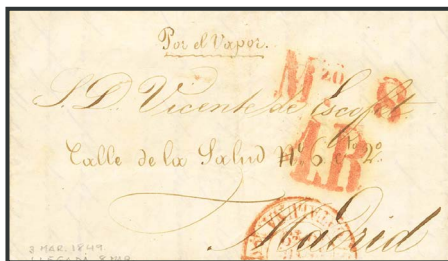 Por el Vapor.
M 20 8
S. D. Vicente de Escofet
1R
Calle de la Salud Nº 6 cto 2º
Madrid
3 MAR. 1849.